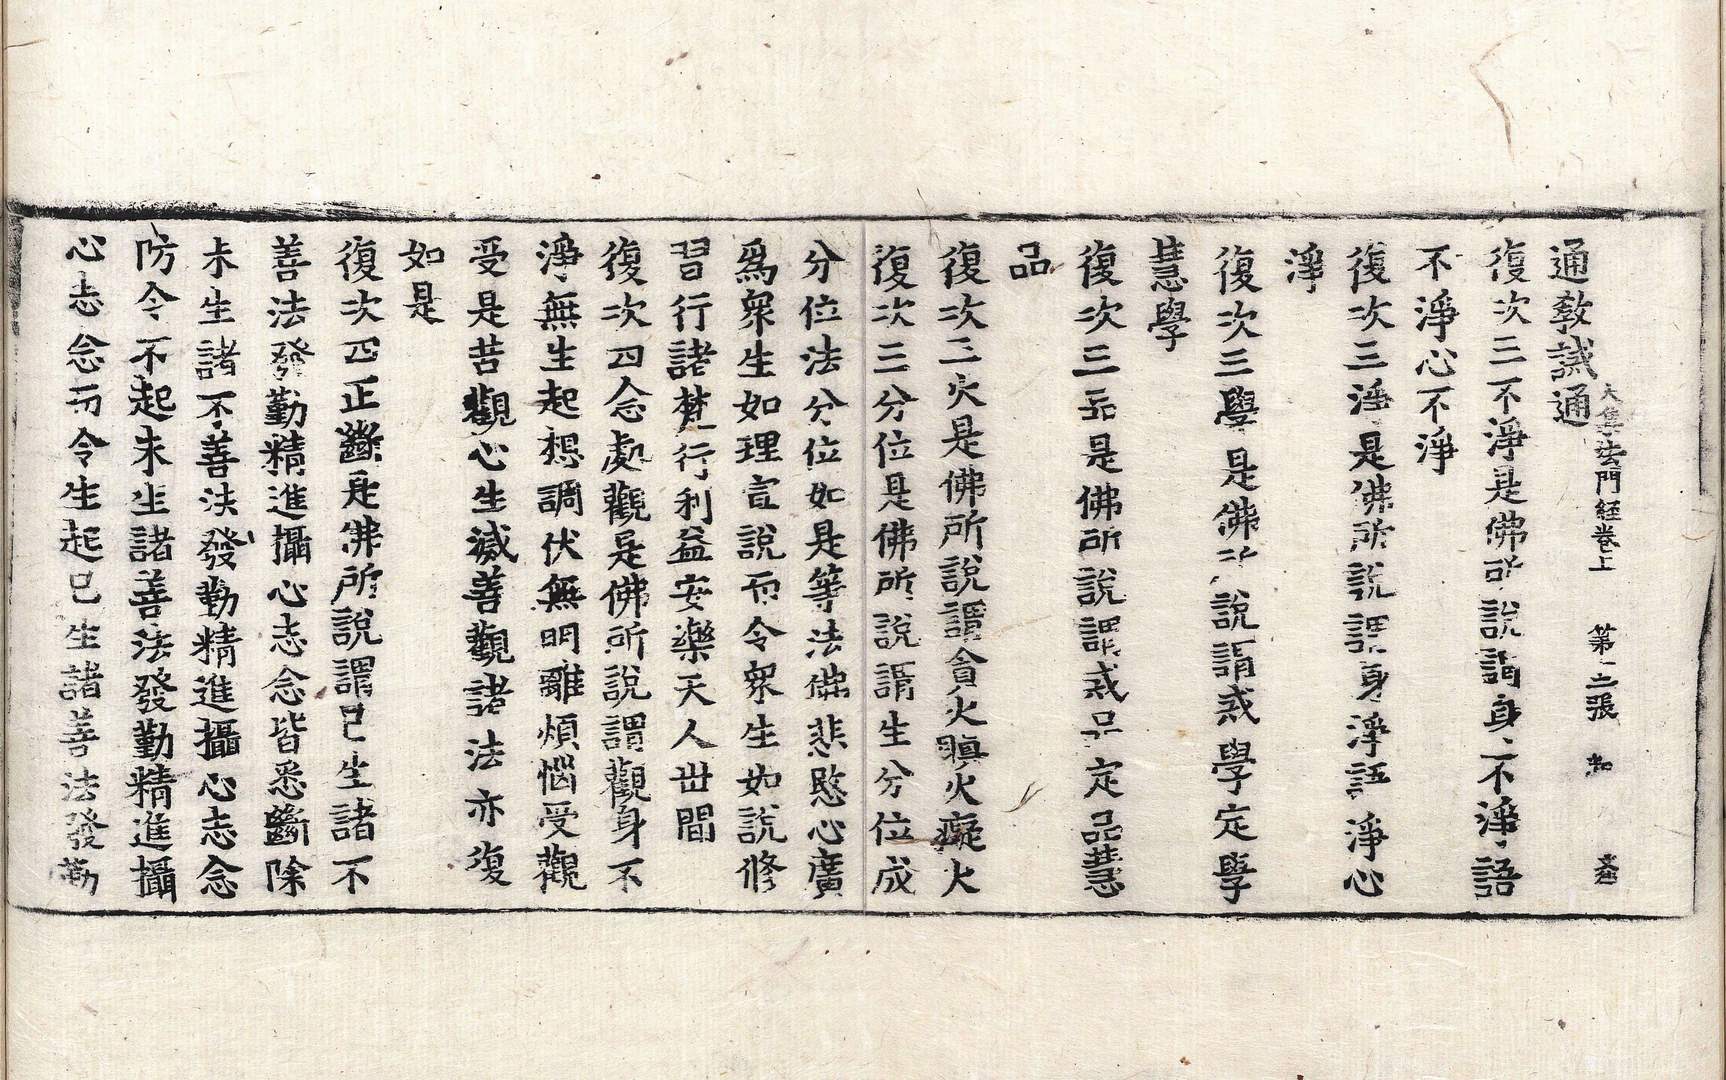 通教誡通
大集法門経卷上 第二張
復次三不淨是佛所說謂身不淨語
不淨心不淨
復次三淨是佛所說謂身淨語淨心
淨
復次三學是佛所說謂戒學定學
慧學
復次三品是佛所說謂戒品定品慧
品
復次三火是佛所說謂貪火瞋火癡火
復次三分位是佛所說謂生分位成
分位法分位如是等法佛悲愍心廣
爲衆生如理宣說而令衆生如說修
習行諸梵行利益安樂天人世間
復次四念處觀是佛所說謂觀身不
淨無生起想調伏無明離煩惱受觀
受是苦觀心生滅善觀諸法亦復
如是
復次四正斷是佛所說謂已生諸不
善法發勤精進攝心志念皆悉斷除
未生諸不善法發勤精進攝心志念
防令不起未生諸善法發勤精進攝
心志念而令生起已生諸善法發勤